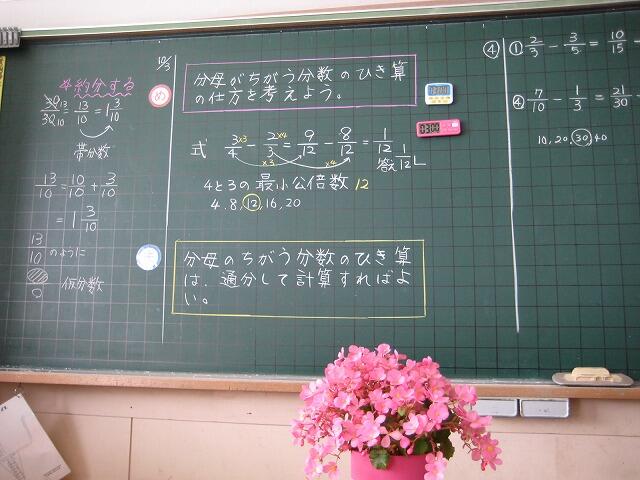 *約分する
39/30 13/10 = 13/10 = 1 3/10
帯分数
13/10 = 10/10 + 3/10
= 1 3/10
13/10 のように
仮分数
10/3
め
分母がちがう分数のひき算
の仕方を考えよう。
式 3/4 ×3 - 2/3 ×4 = 9/12 - 8/12 = 1/12
×3 ×4
答え 1/12 L
4と3の最小公倍数 12
4, 8, 12, 16, 20
分母のちがう分数のひき算
は、通分して計算すればよ
い。
④ ① 2/3 - 3/5 = 10/15 -
④ 7/10 - 1/3 = 21/30 -
10, 20, 30, 40